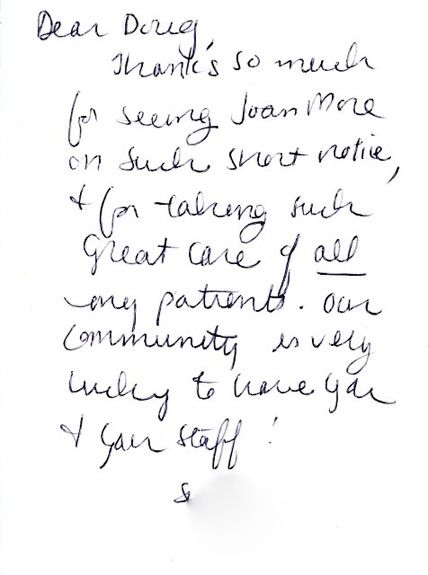 Dear Doug,
Thank's so much
for seeing Joan More
on such short notice,
& for taking such
Great care of all
my patients. Our
Community is very
lucky to have you
& your staff!
S